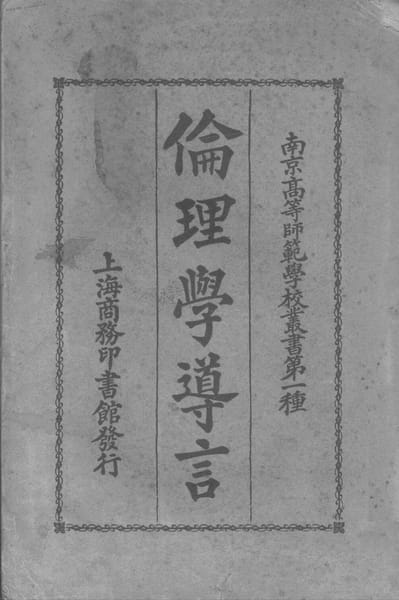 南京高等師範學校叢書第一種
倫理學導言
上海商務印書館發行